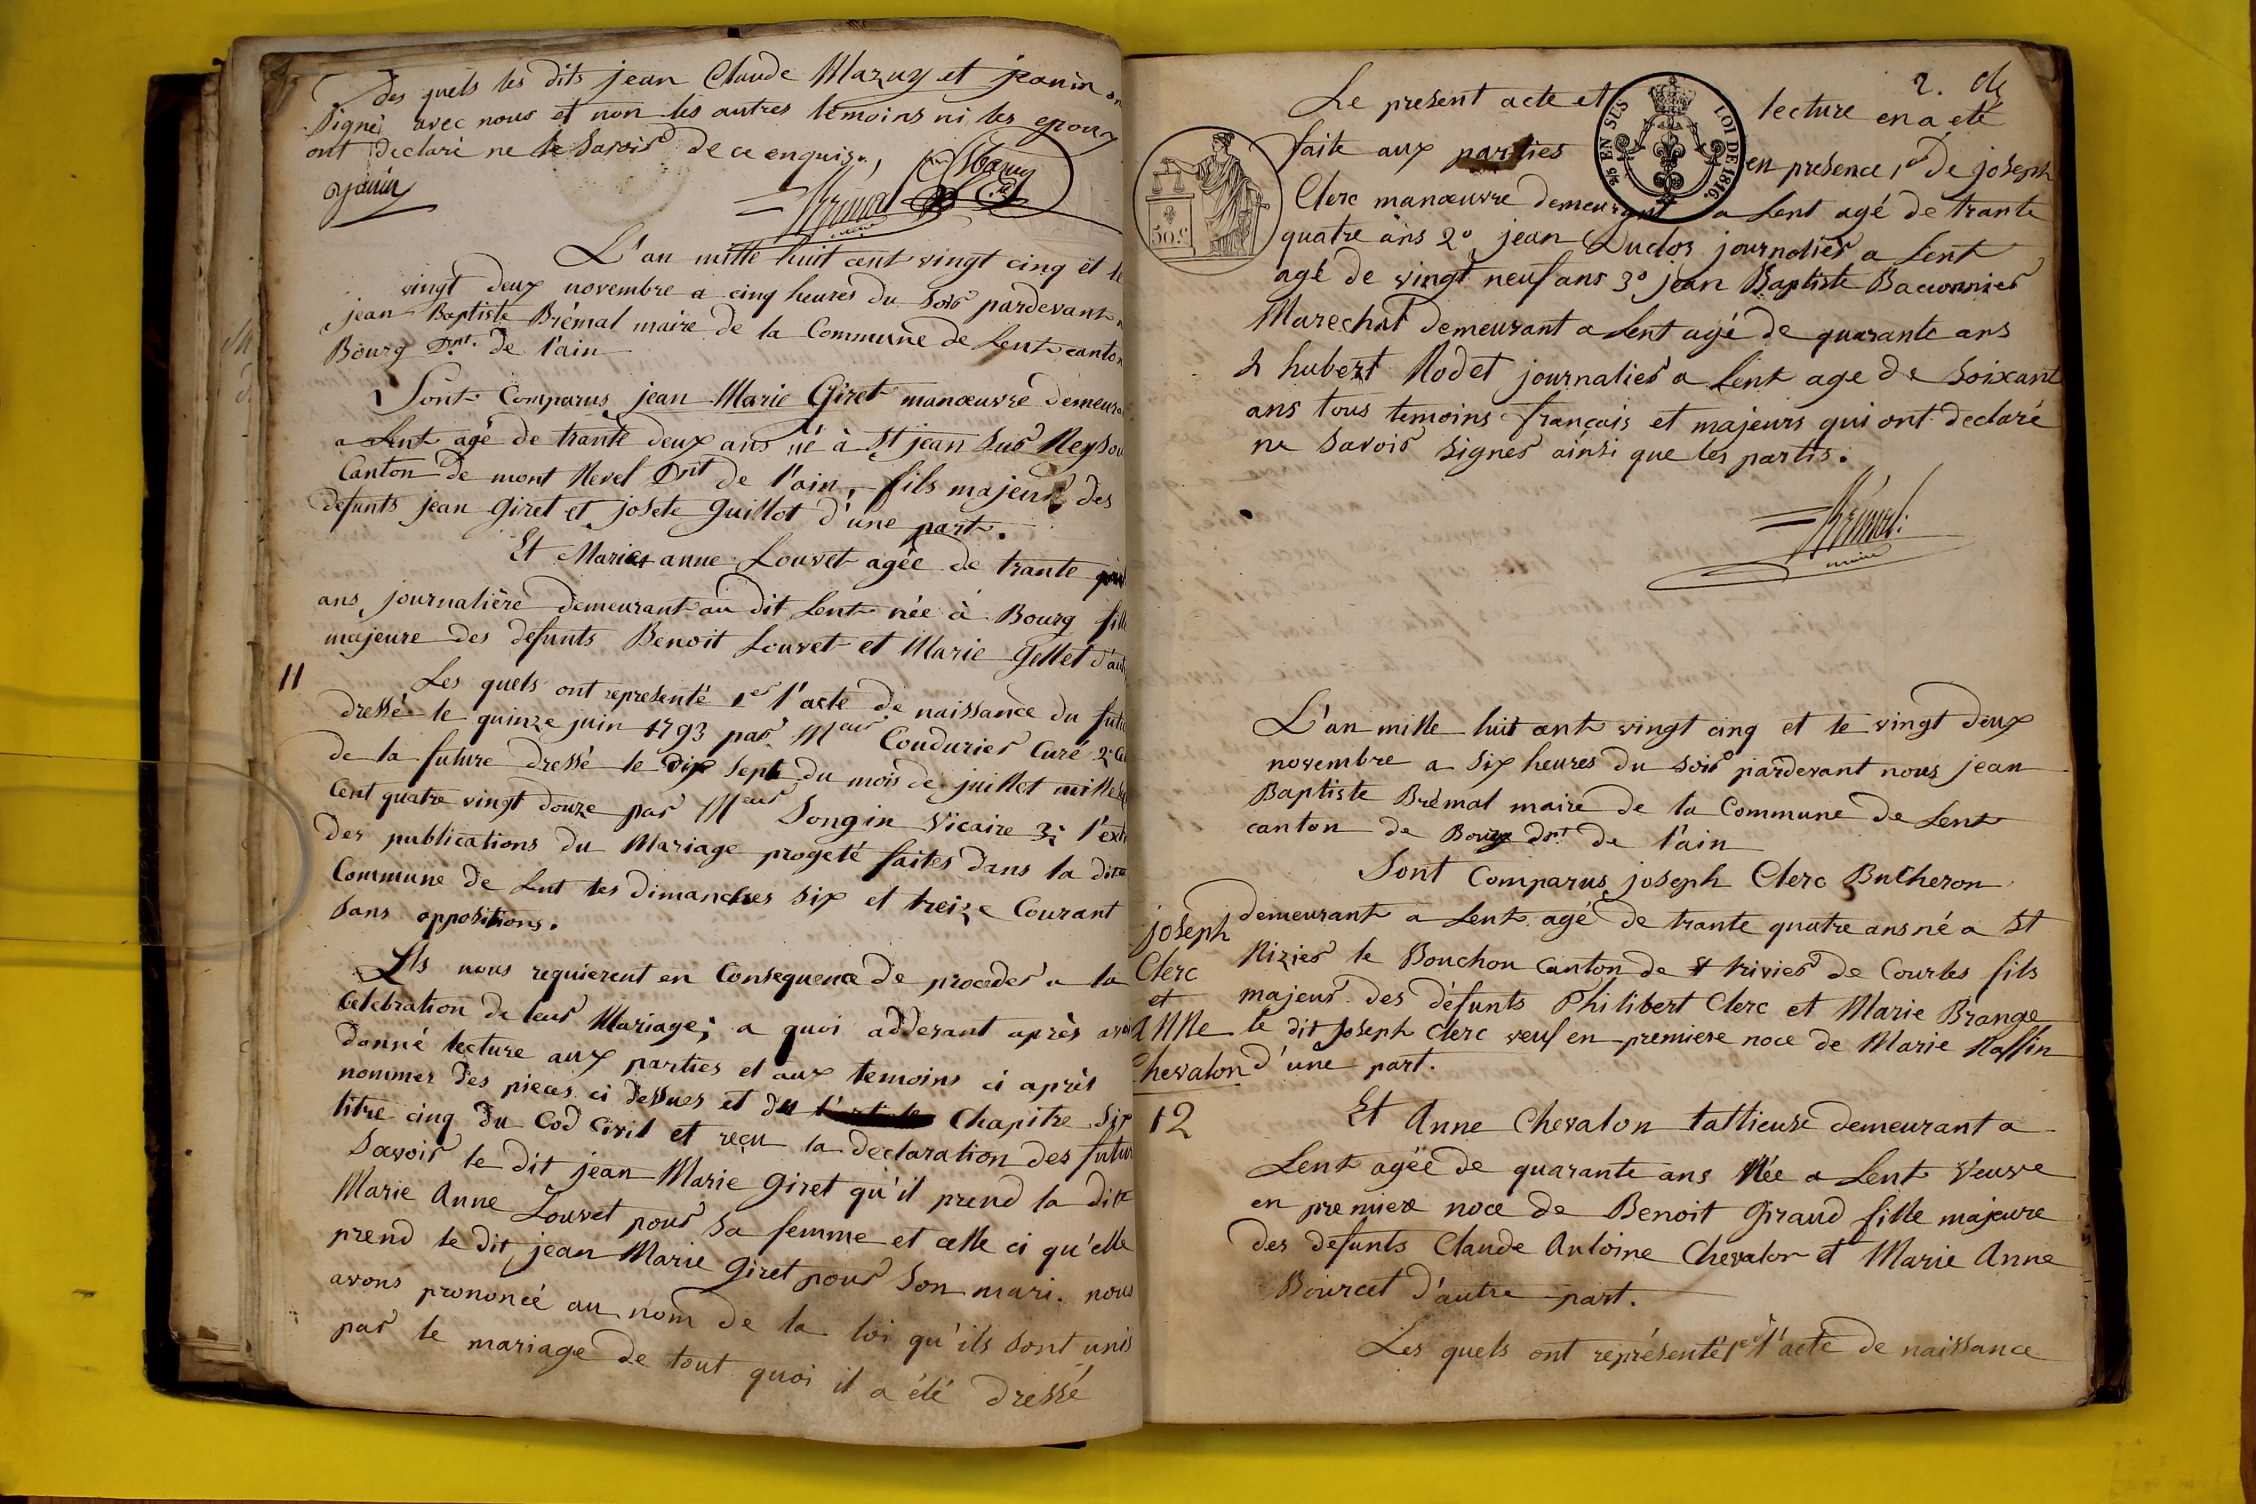 des quels les dits jean Claude Mazuy et jeanin on
signé avec nous et non les autres témoins ni les epoux
ont declaré ne le savoir de ce enquis.
janin
Brémal
maire
L'an mille huit cent vingt cinq et le
vingt deux novembre a cinq heures du soir pardevant n
jean Baptiste Brémal maire de la Commune de Lent canton
Bourg Dnt. de l'ain
Sont Comparus jean Marie Giret manœuvre demeura
a Lent agé de trante deux ans né à St jean sur Reysou
Canton de mont Revel Dnt de l'ain, fils majeur des
defunts jean Giret et josete Guillot d'une part.
Et Marie anne Louvet agée de trante
ans journalière demeurant au dit Lent née à Bourg fille
majeure des defunts Benoit Louvet et Marie Gellet d'aut
11
Les quels ont representé 1er l'acte de naissance du futu
dressé le quinze juin 1793 par Meur Coudurier Curé 2°
de la future dressé le dix sept du mois de juillet mille se
Cent quatre vingt douze par Meur Songin Vicaire 3° l'ext
des publications du Mariage progeté faites dans la dite
Commune de Lent les dimanches six et treize Courant
sans oppositions.
Ils nous requierent en Consequence de proceder a la
Celebration de leur Mariage; a quoi adderant après avoi
donné lecture aux parties et aux temoins ci après
nommer des pieces ci dessues et du Chapitre six
titre cinq du Cod Civil et reçu la declaration des futur
Savoir le dit jean Marie Giret qu'il prend la dite
Marie Anne Louvet pour sa femme et celle ci qu'elle
prend le dit jean Marie Giret pour son mari. nous
avons prononcé au nom de la loi qu'ils sont unis
par le mariage de tout quoi il a été dressé
2.
Le present acte et lecture en a eté
25 EN SUS LOI DE 1816.
50.c
faite aux parties en presence 1er de joseph
Clerc manœuvre demeurant a Lent agé de trante
quatre ans 2° jean Duclos journalier a Lent
agé de vingt neuf ans 3° jean Baptiste Baconnier
Marechal demeurant a Lent agé de quarante ans
& hubert Rodet journalier a Lent age de soixant
ans tous temoins français et majeurs qui ont declaré
ne savoir signer ainsi que les partis.
Brémal.
maire
L'an mille huit cent vingt cinq et le vingt deux
novembre a six heures du soir pardevant nous jean
Baptiste Brémal maire de la Commune de Lent
canton de Bourg Dnt. de l'ain
Sont Comparus joseph Clerc Bucheron
demeurant a Lent agé de trante quatre ans né a St
Nizier le Bouchon Canton de St trivier de Courtes fils
majeur des défunts Philibert Clerc et Marie Brange
le dit Joseph Clerc veuf en premiere noce de Marie Raffin
d'une part.
joseph
Clerc
et
ANNe
Chevalon
12
Et Anne Chevalon tallieuse demeurant a
Lent agée de quarante ans Née a Lent Veuve
en premiere noce de Benoit Giraud fille majeure
des defunts Claude Antoine Chevalon et Marie Anne
Bourcet d'autre part.
Les quels ont représenté 1er l'acte de naissance